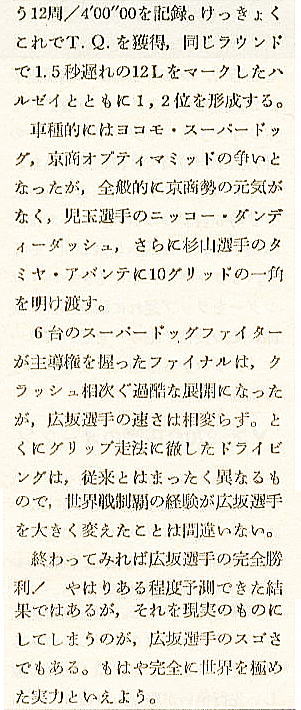 う12周/4′00″00を記録。けっきょく
これでT. Q. を獲得，同じラウンド
で1.5秒遅れの12Lをマークしたハ
ルゼイとともに1，2位を形成する。
　車種的にはヨコモ・スーパードッ
グ，京商オプティマミッドの争いと
なったが，全般的に京商勢の元気が
なく，児玉選手のニッコー・ダンデ
ィーダッシュ，さらに杉山選手のタ
ミヤ・アバンテに10グリッドの一角
を明け渡す。
　6台のスーパードッグファイター
が主導権を握ったファイナルは，ク
ラッシュ相次ぐ過酷な展開になった
が，広坂選手の速さは相変らず。と
くにグリップ走法に徹したドライビ
ングは，従来とはまったく異なるも
ので，世界戦制覇の経験が広坂選手
を大きく変えたことは間違いない。
　終わってみれば広坂選手の完全勝
利！　やはりある程度予測できた結
果ではあるが，それを現実のものに
してしまうのが，広坂選手のスゴさ
でもある。もはや完全に世界を極め
た実力といえよう。